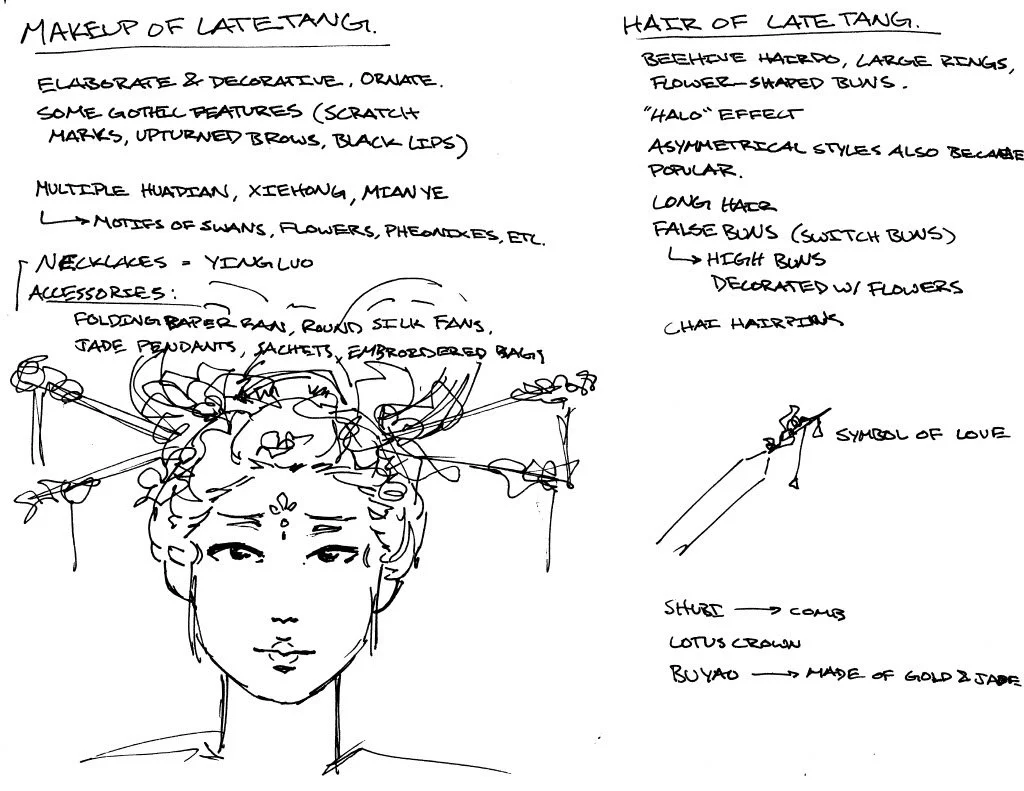 MAKEUP OF LATE TANG.
ELABORATE & DECORATIVE, ORNATE.
SOME GOTHIC FEATURES (SCRATCH
MARKS, UPTURNED BROWS, BLACK LIPS)
MULTIPLE HUADIAN, XIEHONG, MIANYE
→ MOTIFS OF SWANS, FLOWERS, PHEONIXES, ETC.
NECKLACES = YINGLUO
ACCESSORIES:
FOLDING PAPER FAN, ROUND SILK FANS,
JADE PENDANTS, SACHETS, EMBROIDERED BAGS
HAIR OF LATE TANG.
BEEHIVE HAIRDO, LARGE RINGS,
FLOWER-SHAPED BUNS.
"HALO" EFFECT
ASYMMETRICAL STYLES ALSO BECAME
POPULAR.
LONG HAIR
FALSE BUNS (SWITCH BUNS)
→ HIGH BUNS
DECORATED W/ FLOWERS
CHAI HAIRPINS
SYMBOL OF LOVE
SHUBI → COMB
LOTUS CROWN
BUYAO → MADE OF GOLD & JADE